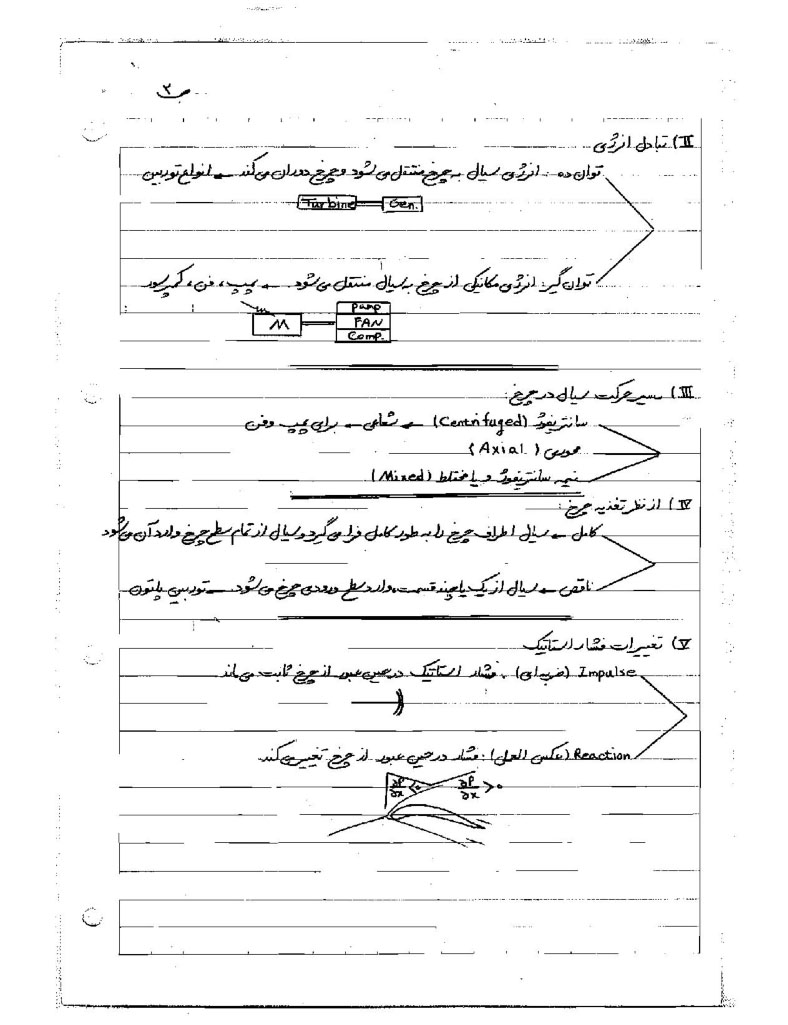 ص ۳
II) تبادل انرژی
توان ده: انرژی سیال به چرخ منتقل می شود و چرخ دوران می کند ← انواع توربین
Turbine Gen.
توان گیر: انرژی مکانیکی از چرخ به سیال منتقل می شود ← پمپ، فن، کمپرسور
M Pump
FAN
Comp.
III) مسیر حرکت سیال در چرخ:
سانتریفوژ (Centrifuged) ← شعاعی ← برای پمپ و فن
محوری (Axial)
نیمه سانتریفوژ و یا مختلط (Mixed)
IV) از نظر تغذیه چرخ:
کامل ← سیال اطراف چرخ را به طور کامل فرا می گیرد و سیال از تمام سطح چرخ وارد آن می شود
ناقص ← سیال از یک یا چند قسمت، وارد سطح ورودی چرخ می شود ← توربین پلتون
V) تغییرات فشار استاتیک
Impulse (ضربه ای): فشار استاتیک در حین عبور از چرخ ثابت می ماند
Reaction (عکس العمل): فشار در حین عبور از چرخ تغییر می کند
∂P/∂x < 0 ∂P/∂x > 0